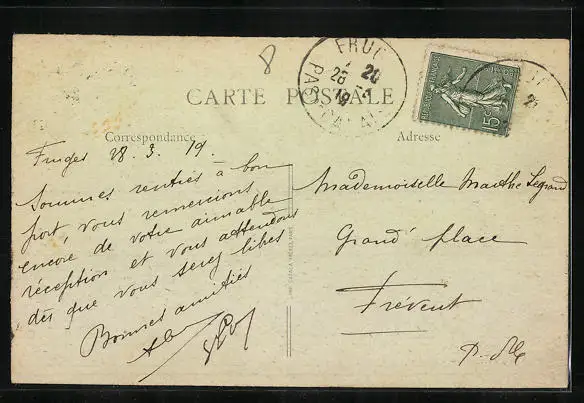 8
FRUGES
28 -3
19
PAS-DE-CALAIS
REPUBLIQUE FRANÇAISE
15c
CARTE POSTALE
Correspondance
Adresse
Fruges 28. 3. 19.
Sommes rentrés à bon
port, vous remercions
encore de votre aimable
réception et vous attendons
dès que vous serez libres
Bonnes amitiés
Mademoiselle Marthe Legrand
Grand' place
Frévent
P. de C.